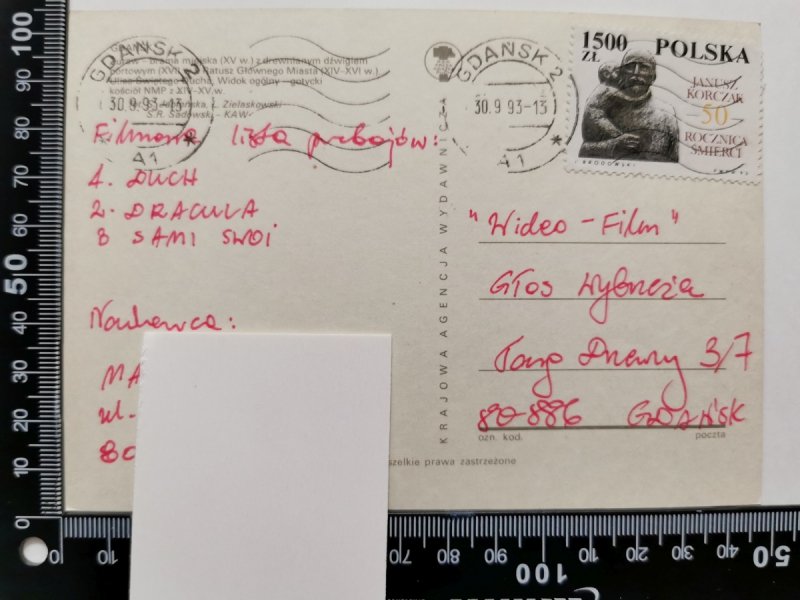 GDAŃSK
Żuraw - brama miejska (XV w.) z drewnianym dźwigiem
portowym (XVI) Ratusz Głównego Miasta (XIV-XVI w.)
Ulica Świętego Ducha, Widok ogólny - gotycki
kościół NMP z XIV-XV w.
L. Zielaskowski
S.R. Sadowski - KAW
GDAŃSK 2
30.9 93-13
A1
*
GDAŃSK 2
30.9 93-13
A1
*
1500
ZŁ
POLSKA
JANUSZ
KORCZAK
50
ROCZNICA
ŚMIERCI
Filmowa lista przebojów:
1. DUCH
2. DRACULA
3 SAMI SWOI
Nadawca:
MA
ul.
80
KRAJOWA AGENCJA WYDAWNICZA
"Wideo - Film"
Głos Wybrzeża
Targ Drzewny 3/7
80-886 GDAŃSK
ozn. kod. poczta
szelkie prawa zastrzeżone
100
90
80
70
60
50
40
30
20
10
0
0
10
70
80
90
100
10
20
30
40
50